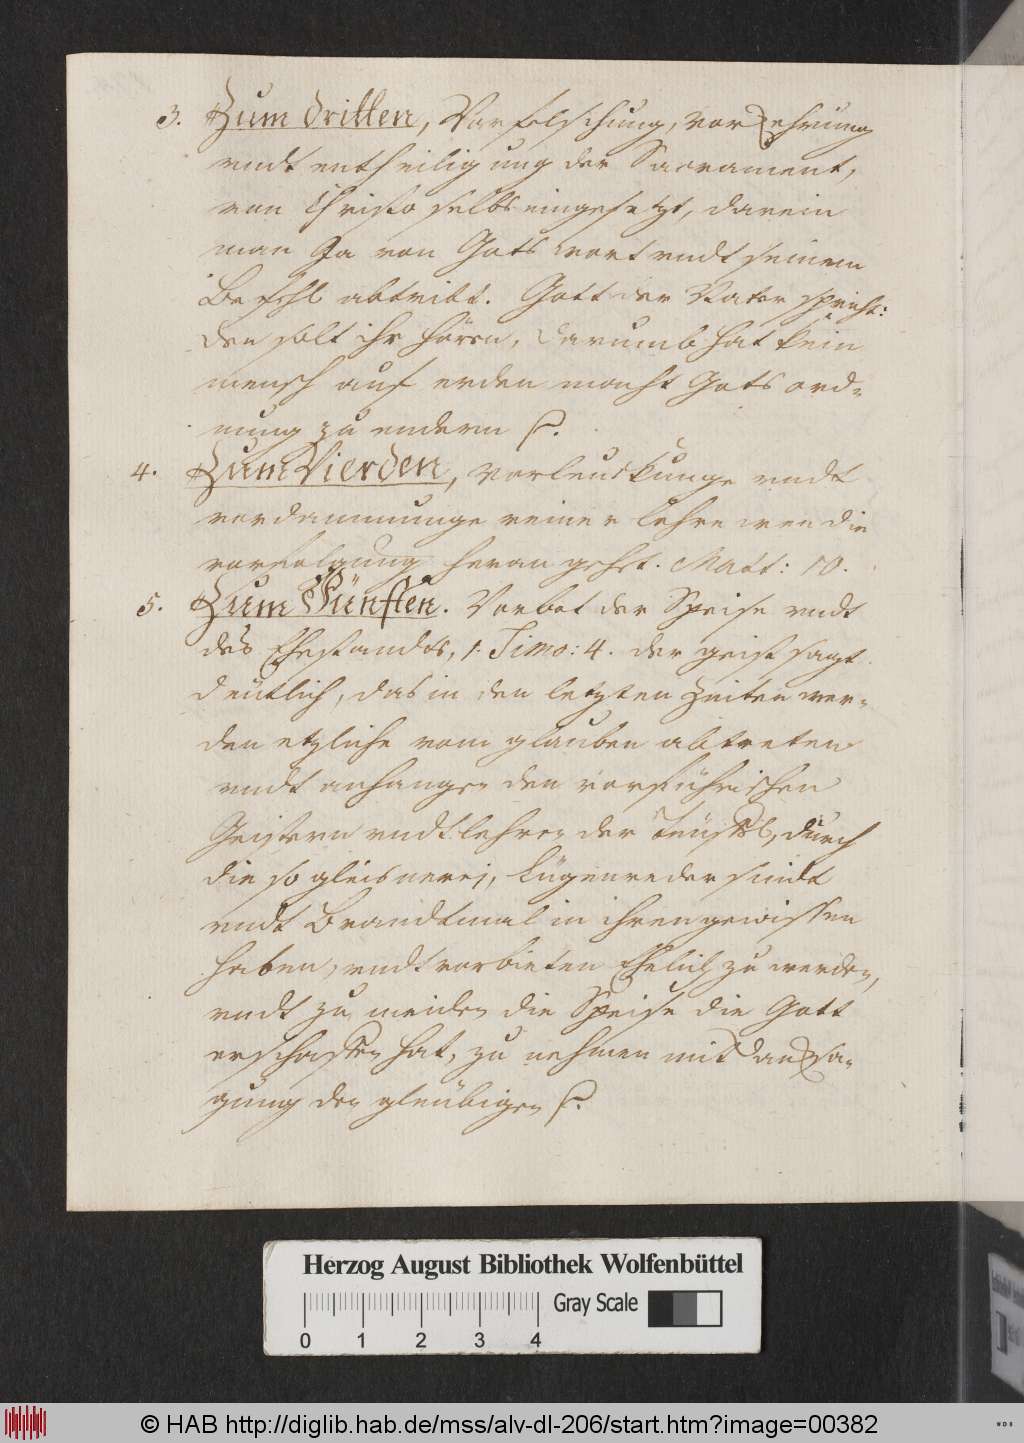 3. Zum dritten, Vorfelschung, vorkehrung
vndt entheiligung der Sacrament,
von Christo selbs eingesetzt, darein
man Ja von Gots wort vndt seinem
Befehl abtritt. Gott der Vater spricht:
den solt ihr hören, darumb hat kein
mensch auf erden macht Gots ord-
nung zu endern p.
4. Zum Vierden, vorleuckunge vndt
verdammunge reiner lehre wen die
vorfolgung heran gehet. Matt: 10.
5. Zum Fünften. Vorbot der Speise vndt
des Ehestandes, 1. Timo: 4. der geist sagt
deutlich, das in den letzten Zeiten wer-
den etzliche vom glauben abtreten
vndt anhangen den vorführischen
Geistern vndt lehren der Teüffel, durch
die so gleisnerej, Lügenreder sindt
vndt Brandtmal in ihren gewissen
haben, vndt vorbieten Ehelich zu werden,
vndt zu meiden die Speise die Gott
erschaffen hat, zu nehmen mit danksa-
gung den gleübigen p.
Herzog August Bibliothek Wolfenbüttel
Gray Scale
0 1 2 3 4
© HAB http://diglib.hab.de/mss/alv-dl-206/start.htm?image=00382